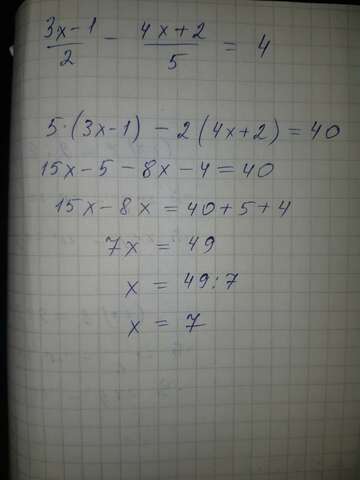 (3x-1)/2 - (4x+2)/5 = 4
5·(3x-1) - 2(4x+2) = 40
15x-5-8x-4=40
15x-8x = 40+5+4
7x = 49
x = 49:7
x = 7